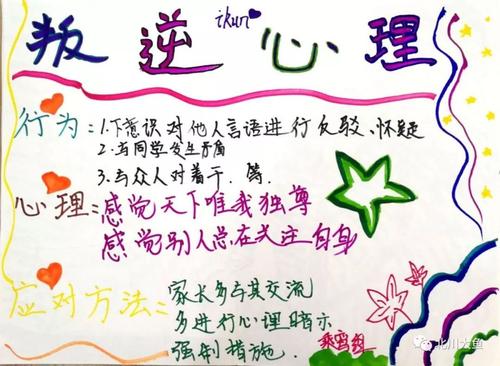 ikun
叛逆心理
行为：1.下意识对他人言语进行反驳、怀疑
2.与同学发生矛盾
3.与众人对着干.等.
心理：感觉天下唯我独尊
感觉别人总在关注自身
应对方法：家长多与其交流
多进行心理暗示
强制措施.
乘霄组
北川大鱼